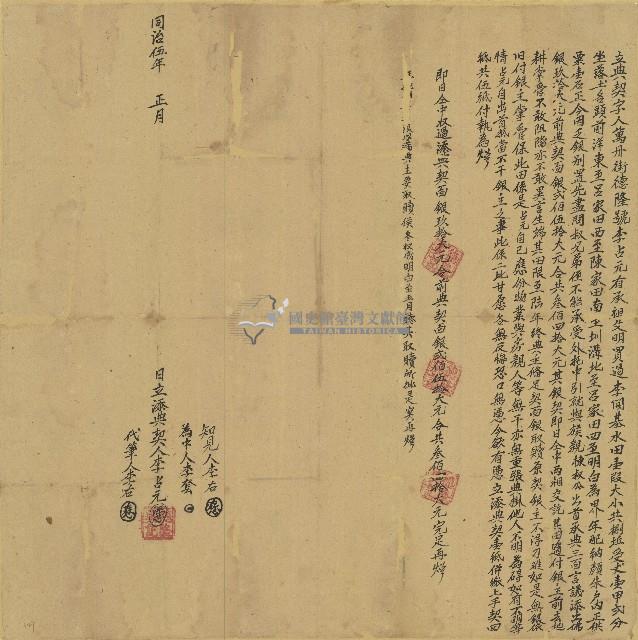 立典契字人萬丹街德隆號李占元有承祖父明買過李開基水田壹段大小共捌坵受丈壹甲弍分
坐落土名頭前洋東至呂家田西至陳家田南至圳溝北至呂家田四至明白為界年配納顏朱戶內正供
粟壹石正今因乏銀別置先盡問叔兄弟侄不能承受外托中引就與族親棟叔公出首承典三面言議添出佛
銀玖拾大元前典契面銀弍佰伍拾大元合共叁佰四拾大元其銀契即日仝中兩相交訖其田隨付銀主前去起
耕掌管不敢阻隔亦不敢異言生端其田限至陆年終典主俻足契面銀取贖原契銀主不得刁难如是無銀依
旧付銀主掌管保此田係是占元自己應份物業與房親人等無干亦無重張典掛他人不明為碍如有不明等
情占元自出首抵當不干銀主之事此係二比甘愿各無反悔恐口無憑今欲有憑立添典契壹紙併繳上手契四
紙共伍紙付執為炤
即日仝中收過添典契面銀玖拾大元合前典契面銀弍佰伍拾大元合共叁佰四拾大元完足再炤
限滿典主要取贖
國史館臺灣文獻館
TAIWAN HISTORICA
知見人李右
為中人李
日立添典契人李占元
代筆人李右
同治伍年 正月